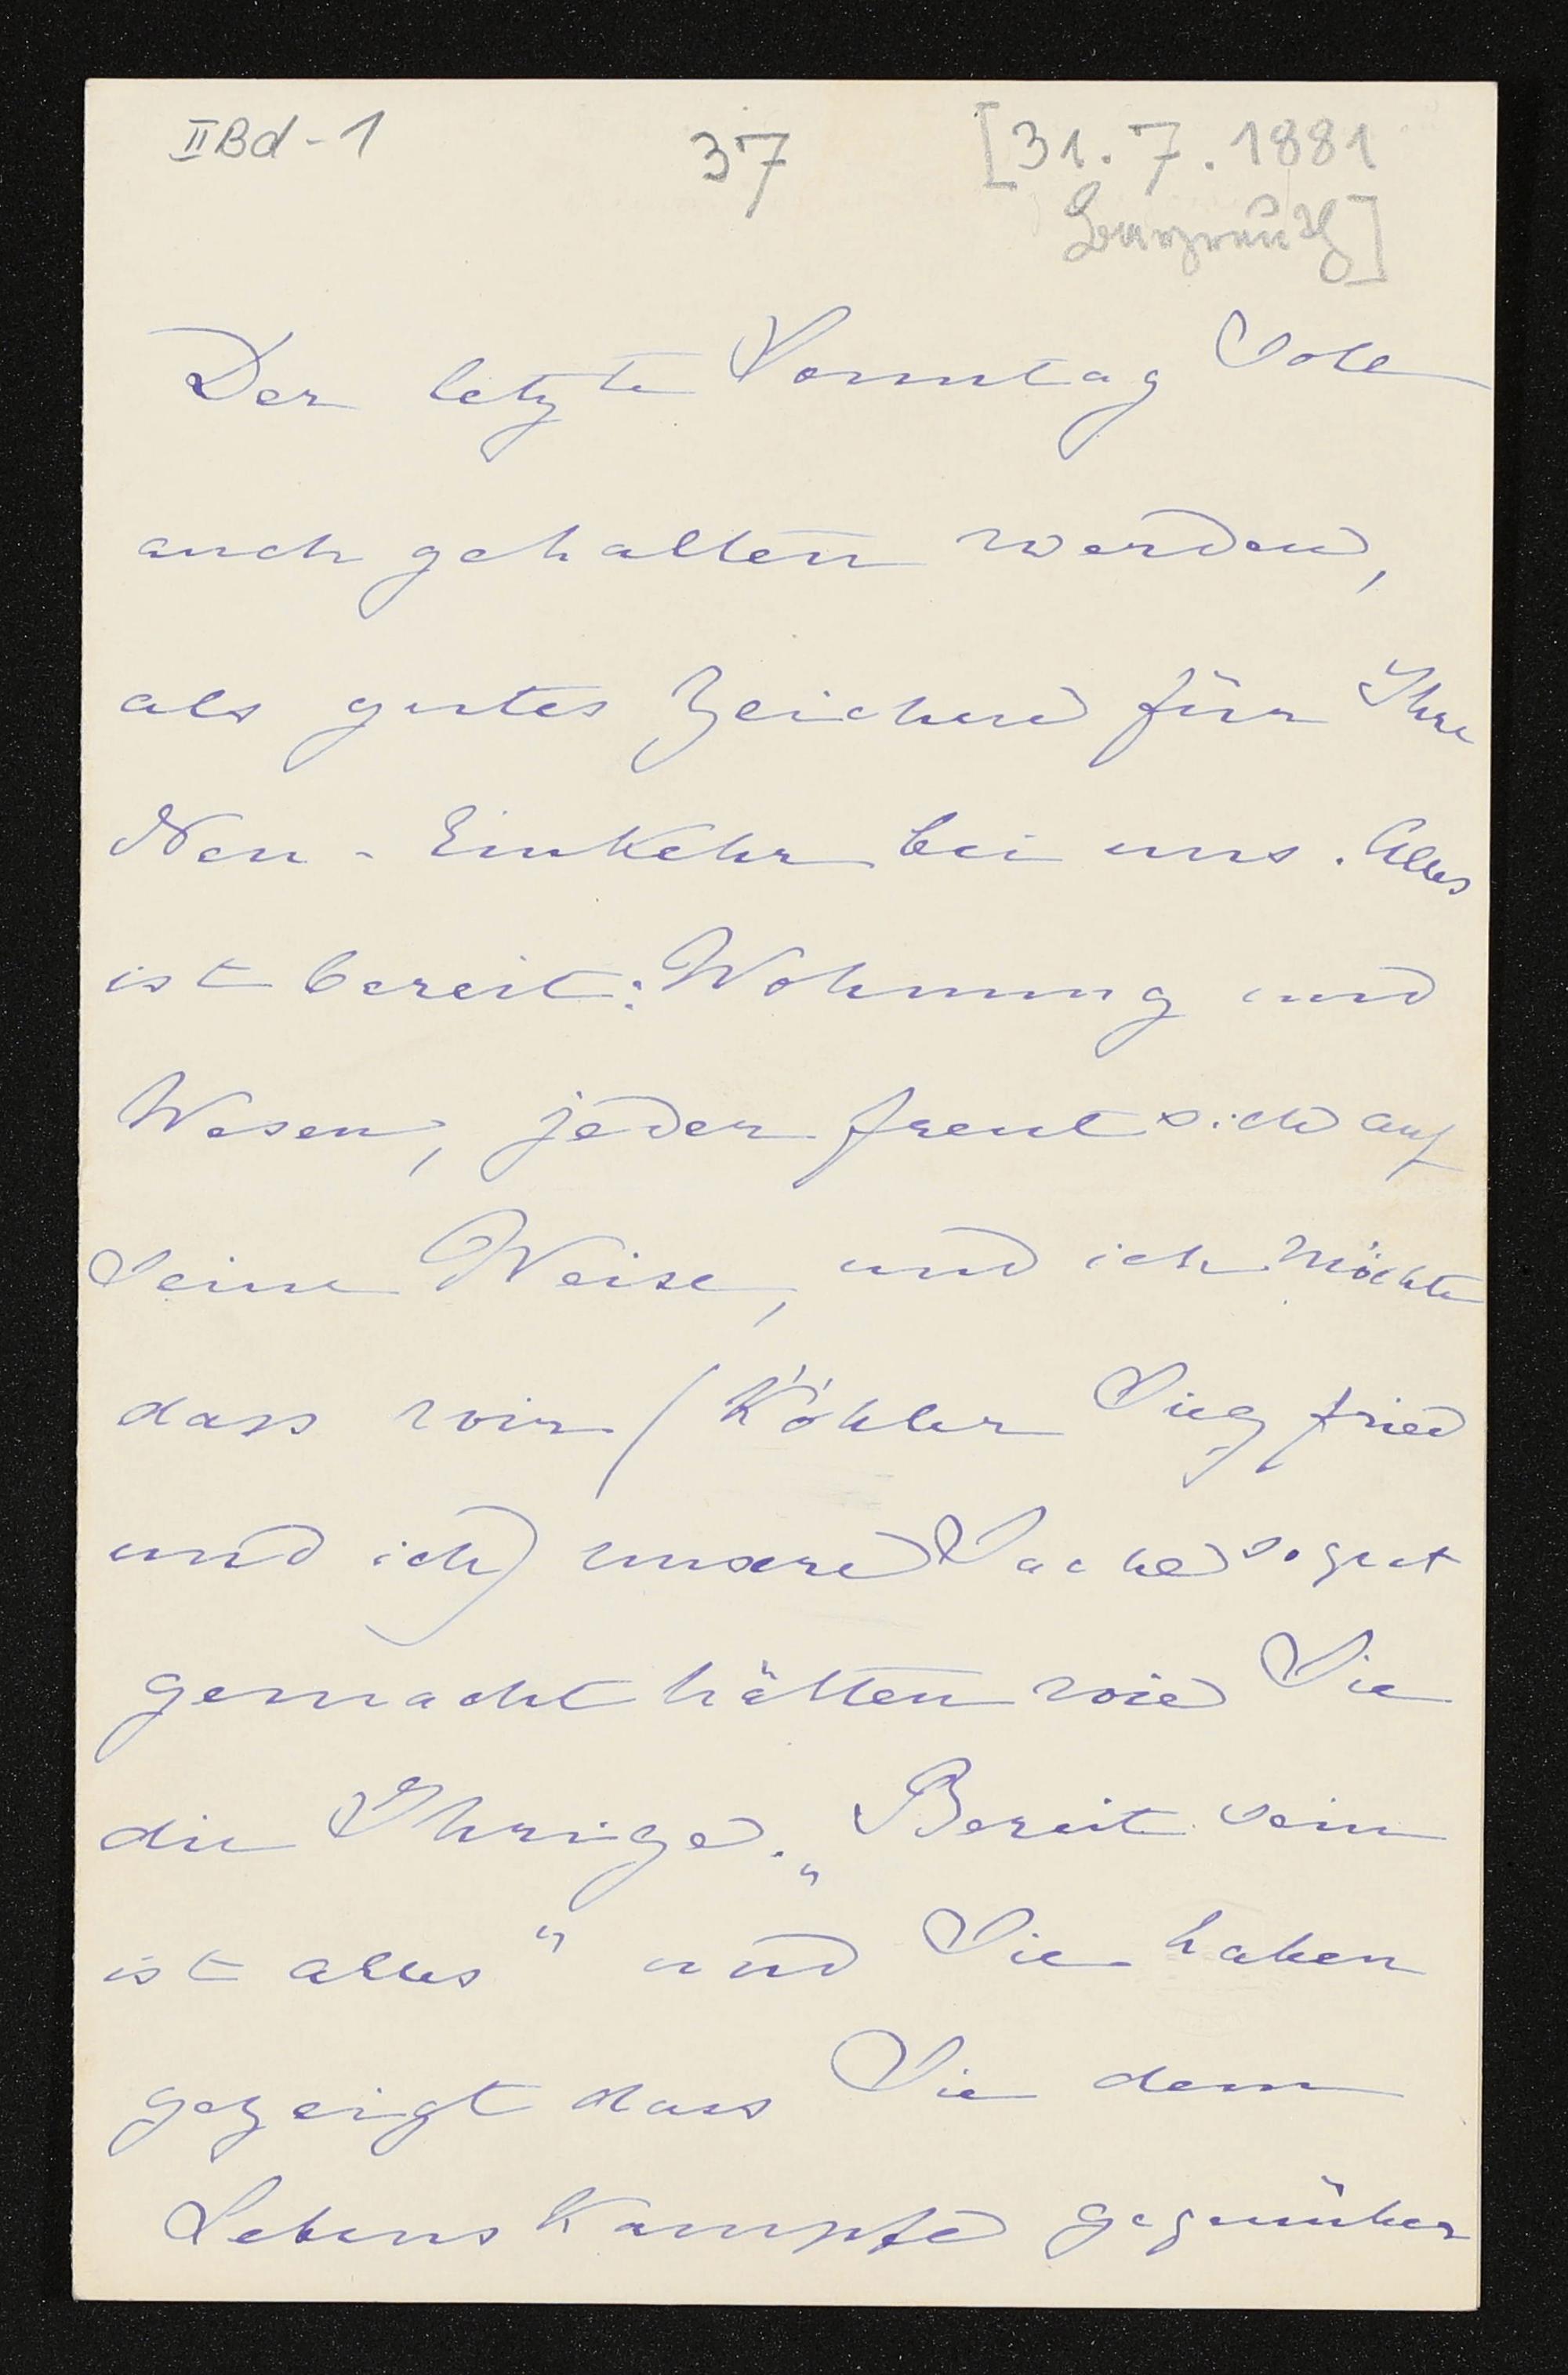 II Bd - 1
37
[31. 7. 1881
Bayreuth]
Der letzte Sonntag soll
auch gehalten werden,
als gutes Zeichen für Ihre
Neu-Einkehr bei uns. Alles
ist bereit: Wohnung und
Wesen, jeder freut sich auf
seine Weise, und ich möchte
dass wir (Köhler Siegfried
und ich) unsere Sache so gut
gemacht hätten wie Sie
die Ihrige. „Bereit sein
ist alles" und Sie haben
gezeigt dass Sie dem
Lebens Kampfe gegenüber